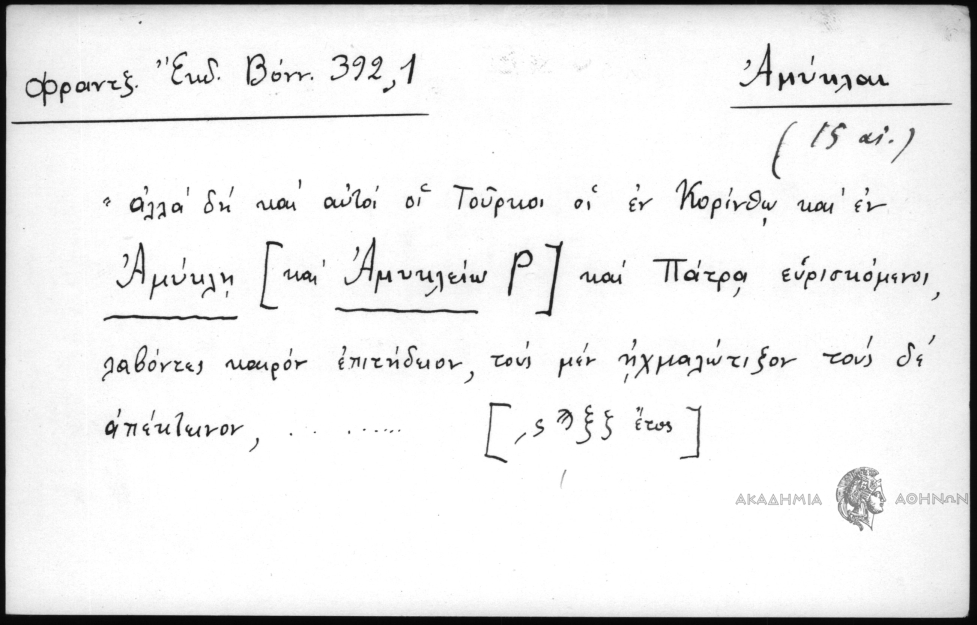 Φραντζ. Ἔκδ. Βόνν. 392,1
Ἀμύκλαι
(15 αἰ.)
" ἀλλά δή καί αὐτοί οἱ Τοῦρκοι οἱ ἐν Κορίνθῳ καί ἐν
Ἀμύκλῃ [καί Ἀμυκλείῳ P] καί Πάτρᾳ εὑρισκόμενοι,
λαβόντες καιρόν ἐπιτήδειον, τούς μέν ᾐχμαλώτιζον τούς δέ
ἀπέκτεινον, .. ....... [͵ςϡξζ ἔτος]
ΑΚΑΔΗΜΙΑ ΑΘΗΝΩΝ